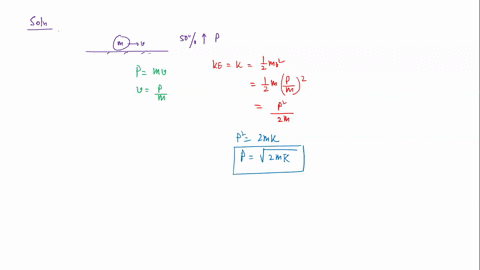 Soln
m → v 50% ↑ P
P = mv
v = P/m
KE = K = 1/2 mv²
= 1/2 m (P/m)²
= P²/2m
P² = 2mK
P = √2mK